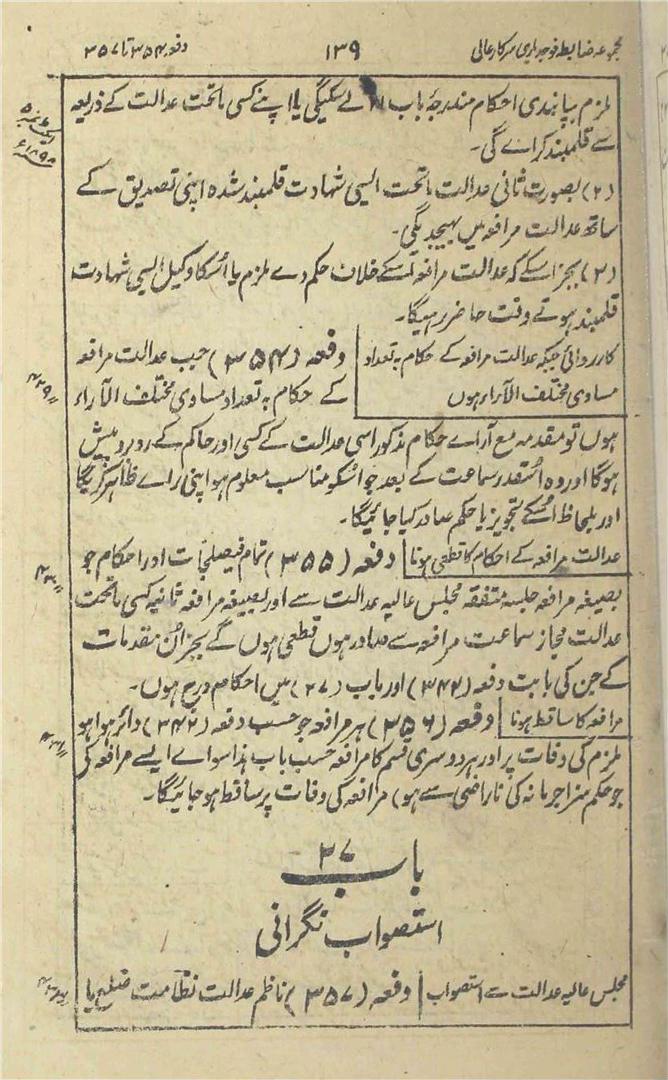 مجموعہ ضابطہ فوجداری سرکار عالی ۱۳۹ دفعہ ۳۵۴ تا ۳۵۷
ملزم بپابندی احکام مندرجۂ باب لے سکیگی یا اپنے کسی ماتحت عدالت کے ذریعہ
سے قلمبند کراے گی۔
(۲) بصورت ثانی عدالت ماتحت ایسی شہادت قلمبند شدہ اپنی تصدیق کے
ساتھ عدالت مرافعہ میں بھیجدیگی۔
(۳) بجز اسکے کہ عدالت مرافعہ اسکے خلاف حکم دے ملزم یا اُسکا وکیل ایسی شہادت
قلمبند ہوتے وقت حاضر رہیگا۔
کارروائی جبکہ عدالت مرافعہ کے حکام بہ تعداد
مساوی مختلف الآراء ہوں
دفعہ (۳۵۴) جب عدالت مرافعہ
کے حکام بہ تعداد مساوی مختلف الآراء
ہوں تو مقدمہ مع آراے حکام مذکور اسی عدالت کے کسی اور حاکم کے روبرو پیش
ہوگا اور وہ اُسقدر سماعت کے بعد جو اُسکو مناسب معلوم ہو اپنی راے ظاہر کریگا
اور بلحاظ اُسکے تجویز یا حکم صادر کیا جائیگا۔
عدالت مرافعہ کے احکام کا قطعی ہونا دفعہ (۳۵۵) تمام فیصلجات اور احکام جو
بصیغہ مرافعہ جلسہ متفقہ مجلس عالیہ عدالت سے اور بصیغہ مرافعہ ثانیہ کسی ماتحت
عدالت مجاز سماعت مرافعہ سے صادر ہوں قطعی ہوں گے بجز اُن مقدمات
کے جن کی بابت دفعہ (۳۴۲) اور باب (۲۷) میں احکام درج ہوں۔
مرافعہ کا ساقط ہونا دفعہ (۳۵۶) ہر مرافعہ جو حسب دفعہ (۳۴۲) دائر ہوا ہو
ملزم کی وفات پر اور ہر دوسری قسم کا مرافعہ حسب باب ہذا سواے ایسے مرافعہ کی
جو حکم سزا جرمانہ کی ناراضی سے ہو) مرافعہ کی وفات پر ساقط ہو جائیگا۔
باب ۲۷
استصواب نگرانی
مجلس عالیہ عدالت سے استصواب دفعہ (۳۵۷) ناظم عدالت نظامت ضلع یا